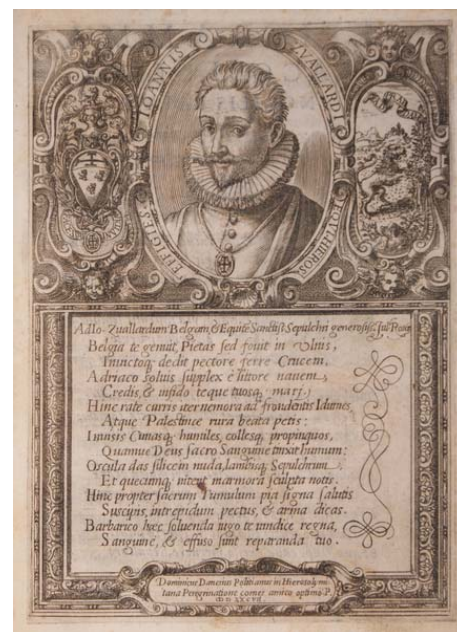 EFFIGIES IOANNIS ZVALLARDI EQV. HIEROS
Ad Io. Zuallardum Belgam, & Equitē Sanctiss. Sepulchri generosiss.
Belgia te genuit, Pietas sed fouit in vlnis,
Inuictoq; dedit pectore ferre Crucem.
Adriaco soluis supplex è littore nauem,
Credis, & infido teque tuosq; mari.
Hinc rate curris iter nemora ad frondentis Idumes,
Atque Palestinæ rura beata petis:
Inuisis Cunasq; humiles, collesq; propinquos,
Quamue Deus sacro Sanguine tinxit humum:
Oscula das silicem nuda, lambisq; Sepulchrum,
Et quecumq; nitent marmora sculpta notis.
Hinc propter sacrum Tumulum pia signa salutis
Suscipis, intrepidum pectus, & arma dicas.
Barbarico hæc soluenda iugo te vindice regna,
Sanguine, & effuso sunt reparanda tuo.
Dominicus Danesius Politianus in Hierosolymi
tana Peregrinatione comes amico optimo P.